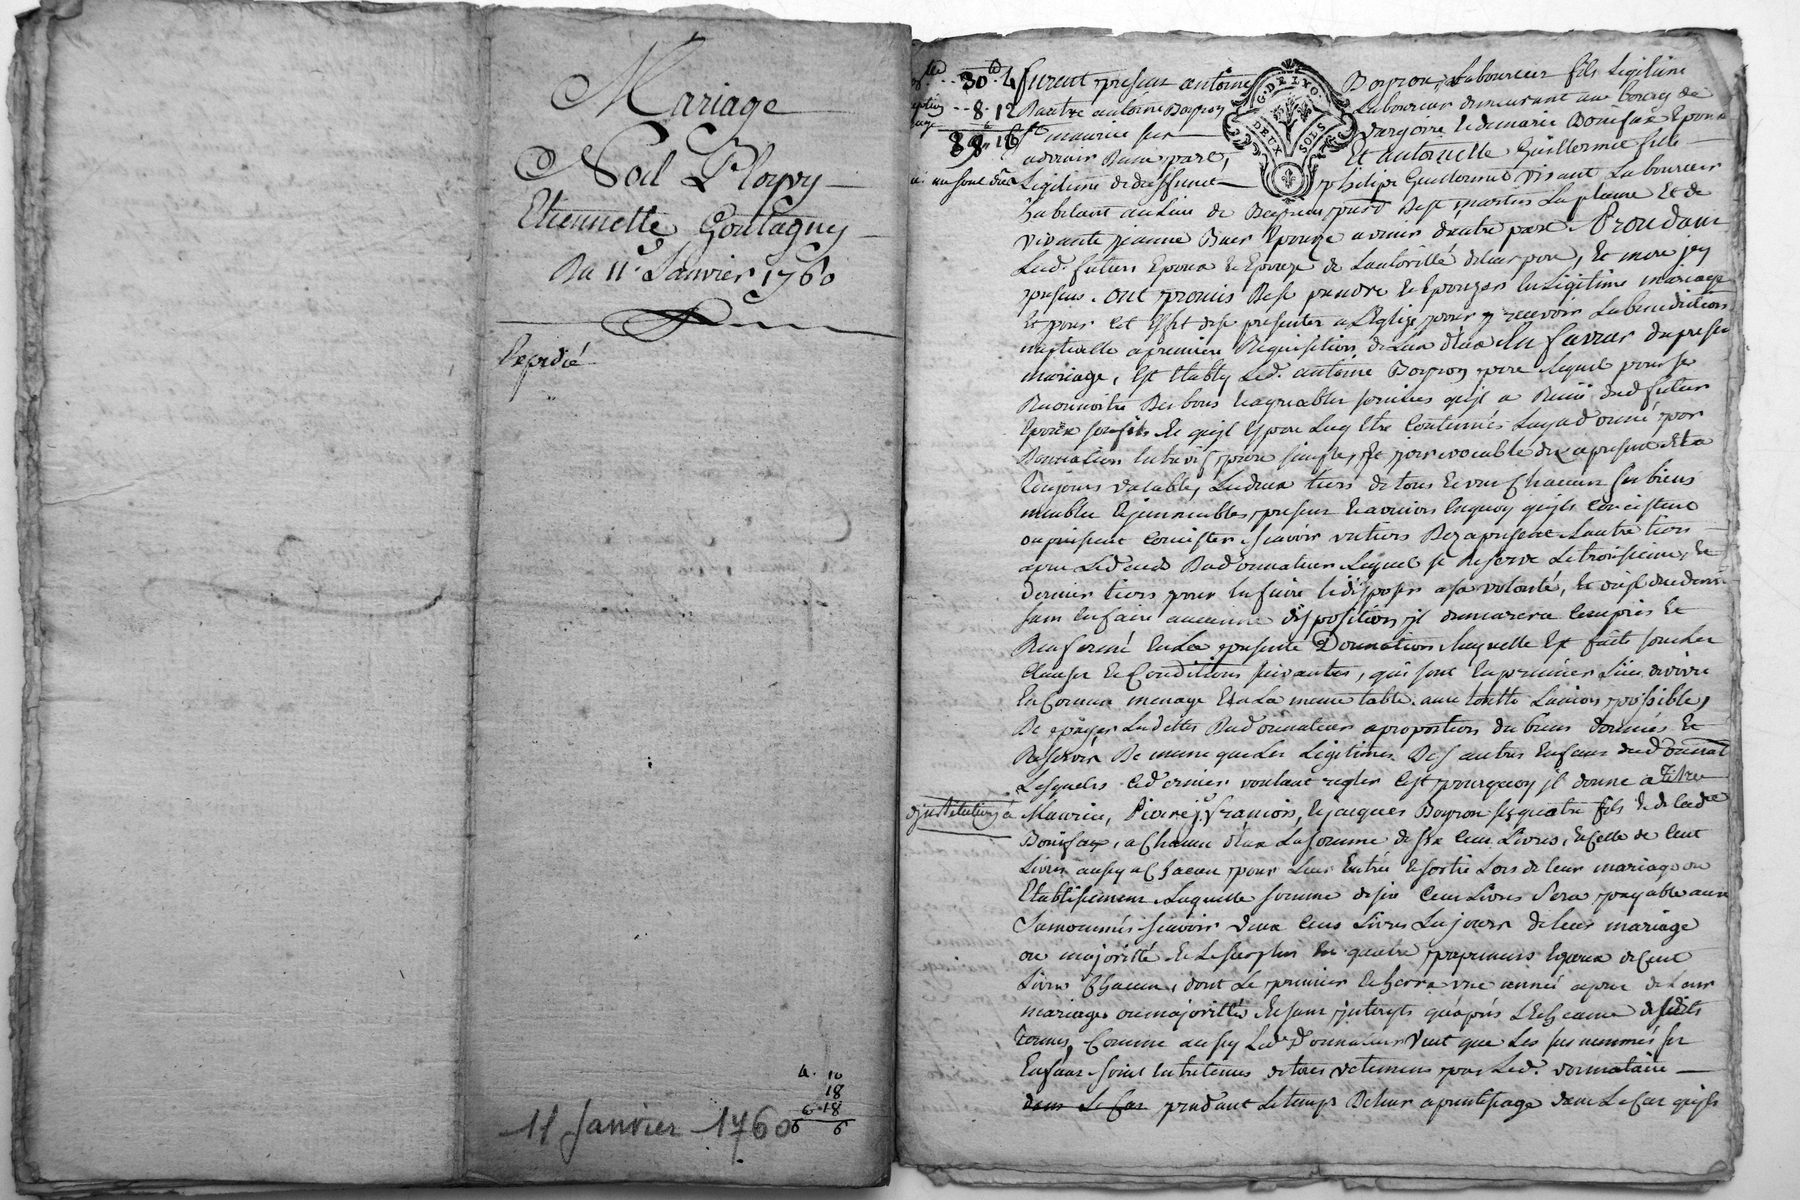 Mariage
Noel Ployvy
Etiennette Goutagny
Du 11e Janvier 1760
Expedié
4. 10
18
6. 18
6 6
11 Janvier 1760
30 4
8. 12
G. DE LYON
DEUX SOLS
furent presens antoine Boyron, Laboureur fils Legitime
D'autre antoine Boyron Laboureur demeurant au bourg de
St maurice sur dargoire et de marie Bonifax Epoux
advenir D'une part, Et antoinette Guillermet fille
Legitime de deffunt philipe Guillermet vivant Laboureur
habitant au Lieu de St martin La plaine Et de
vivante jeanne Epouze avenir d'autre part
Led. futurs Epoux et Epouze de Lautorité de leur pere, Et mere jcy
presens. ont promis de se prendre et Epouzer en Legitime mariage
Et pour cet Effet de se presenter a L'Eglize pour y recevoir La benediction
nuptialle a premiere Requisition de Lun d'eux En faveur du present
mariage, Est Etably Led. antoine Boyron pere Lequel pour se
Reconnoitre Des bons et agreables services qu'il a Recu dud futur
Epoux son fils et qu'il Espere Luy Etre Continués Luy a donné par
Donnation entre vifs pure simple, Et jrrevocable des a present Et a
toujours valable, Les deux tiers de tous Et un Chacun ses biens
meubles Et jmmeubles presens Et avenirs En quoy qu'ils Concistent
ou puissent Concister scavoir un tiers Dez a present Lautre tiers
apres Led deces Dud donnateur Lequel se Reserve Le troisieme Et
dernier tiers pour En faire Et disposer a sa volonté, Et
sans En faire aucunne disposition jl demeurera Compris Et
Renfermé En La presente Donnation Laquelle Est faite sous Les
Clauses Et Conditions suivantes, qui sont En premier Lieu de vivre
En Commun menage Et a La meme table avec toutte Lunion possible,
De payer Les dettes Dud donnateur a proportion du biens donnés Et
Reservés De meme que Les Legitimes Des autres Enfans dud donnat
Lesquels ce dernier voulant regler C'est pourquoy jl donne a Titre
d'jnstitution, a Maurice, Pierre, j. François, Et jacques Boyron ses quatre fils Et de Lade
Bonifax, a Chacun d'Eux La somme de six Cens Livres, Et Celle de Cent
Livres aussy a Chacun pour Leur Entrée Et sortie Lors de Leur mariage ou
Etablissement Laquelle somme de six Cens Livres sera payable aux
Surnommés scavoir deux Cens Livres Le jour de Leur mariage
ou majorité Et Le surplus En quatre payemens Egaux de Cent
Livres Chacun, dont Le premier Echerra une année apres de Leur
mariage ou majorité Et sans jnterests qu'après L'Echeance desdits
termes, Comme aussy Led. Donnateur Veut que Les sus nommés ses
Enfans soient Entretenus de tous vetemens par Led. donnataire
dans Le Cas pendant Le temps De Leur aprentissage dans Le Cas qu'ils